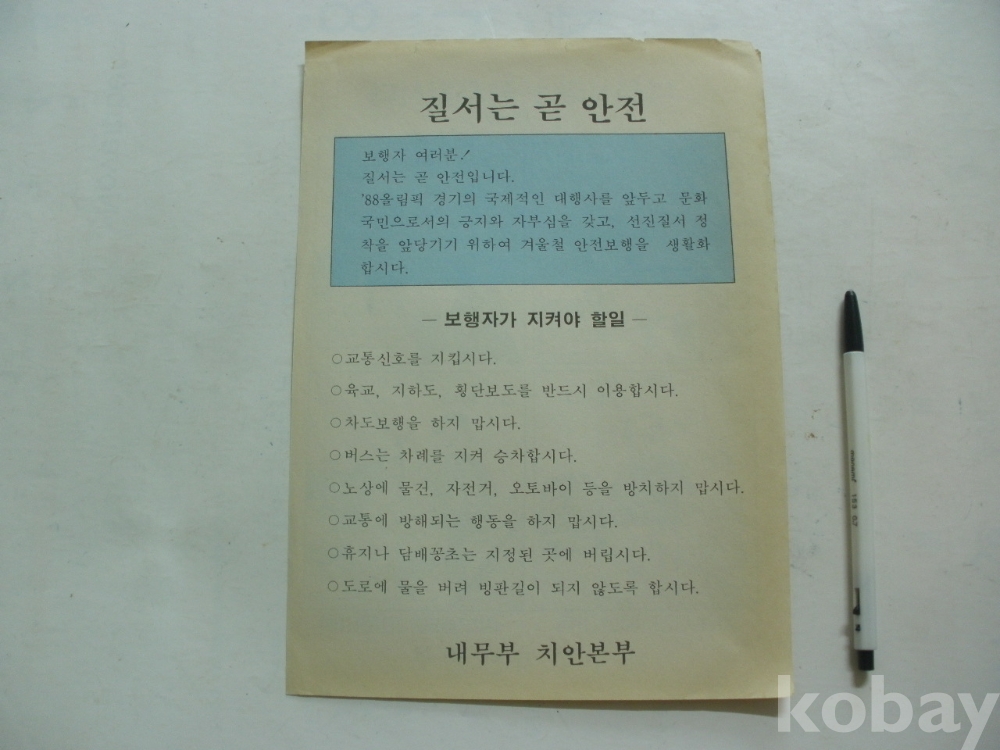 질서는 곧 안전
보행자 여러분!
질서는 곧 안전입니다.
'88올림픽 경기의 국제적인 대행사를 앞두고 문화
국민으로서의 긍지와 자부심을 갖고, 선진질서 정
착을 앞당기기 위하여 겨울철 안전보행을 생활화
합시다.
— 보행자가 지켜야 할일 —
○교통신호를 지킵시다.
○육교, 지하도, 횡단보도를 반드시 이용합시다.
○차도보행을 하지 맙시다.
○버스는 차례를 지켜 승차합시다.
○노상에 물건, 자전거, 오토바이 등을 방치하지 맙시다.
○교통에 방해되는 행동을 하지 맙시다.
○휴지나 담배꽁초는 지정된 곳에 버립시다.
○도로에 물을 버려 빙판길이 되지 않도록 합시다.
내무부 치안본부
kobay